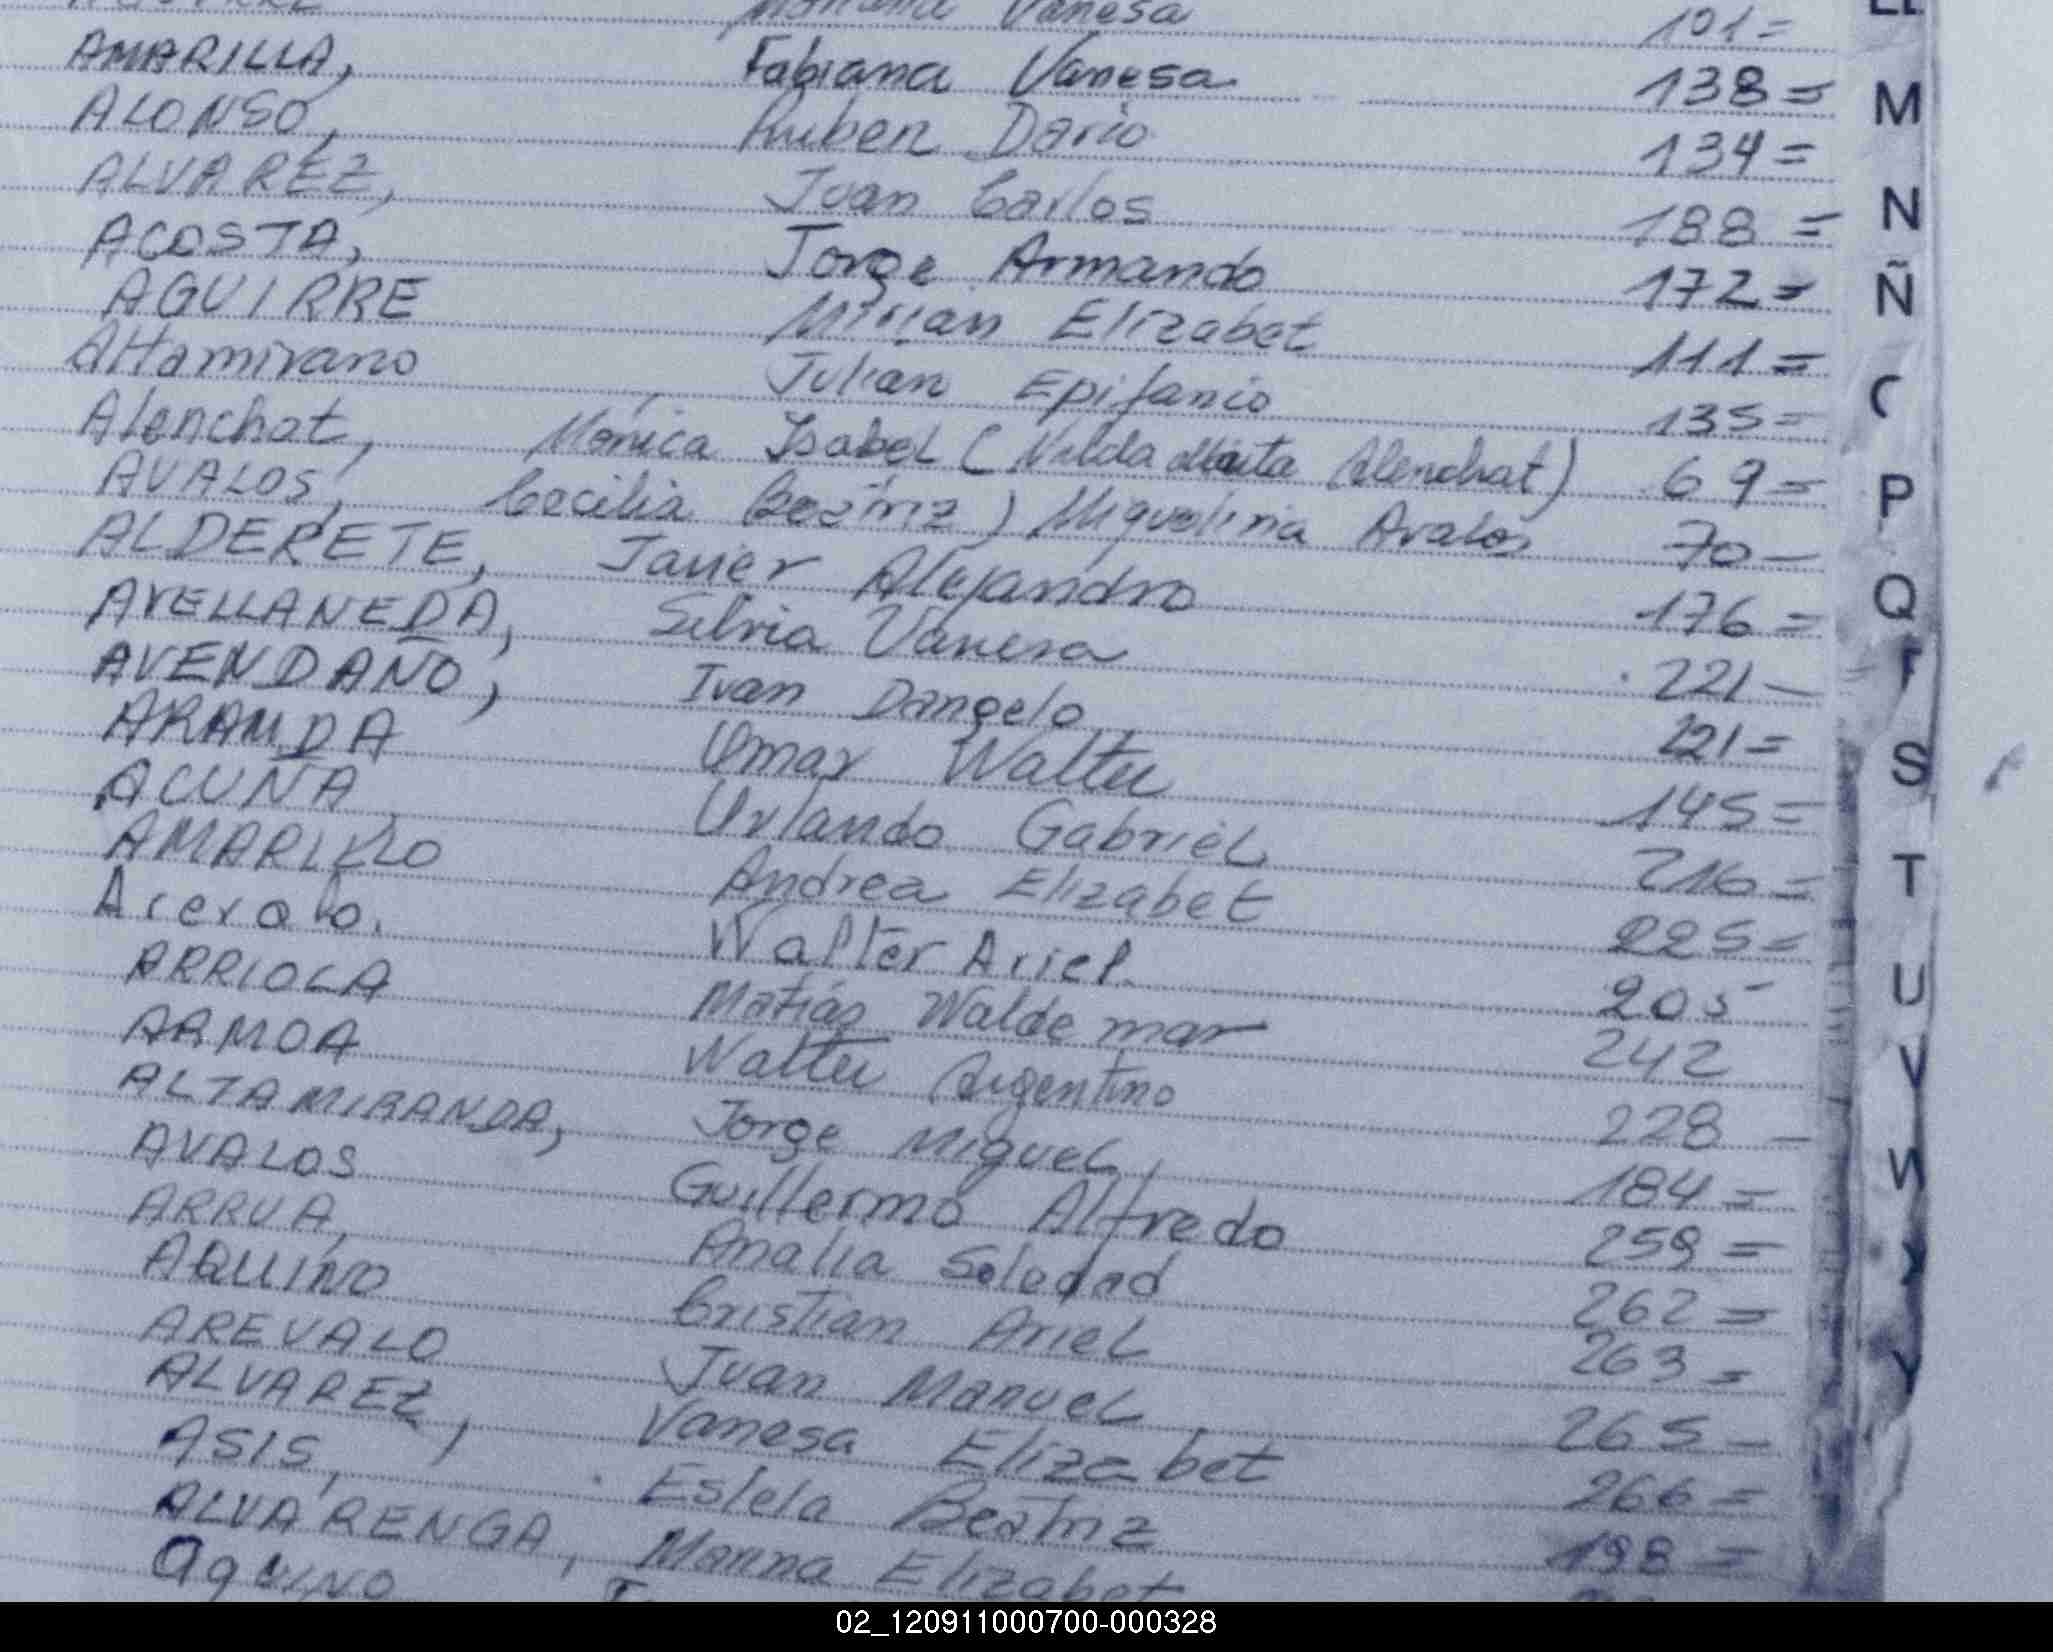 Vanesa 101=
AMARILLA, Fabiana Vanesa 138=
ALONSO, Ruben Dario 134=
ALVAREZ, Juan Carlos 188=
ACOSTA, Jorge Armando 172=
AGUIRRE Mirian Elizabet 111=
Altamirano, Julian Epifanio 135=
Alenchat, Monica Isabel (Nilda Marta Alenchat) 69=
AVALOS, Cecilia Beatriz) Miguelina Avalos 70-
ALDERETE, Javier Alejandro 176=
AVELLANEDA, Silvia Vanesa 221-
AVENDAÑO, Ivan Dangelo 221=
ARANDA Omar Walter 145=
ACUÑA, Orlando Gabriel 216=
AMARILLO Andrea Elizabet 225=
Arevalo. Walter Ariel 205-
ARRIOLA Matias Waldemar 242
ARMOA Walter Argentino 228-
ALTAMIRANDA, Jorge Miguel, 184=
AVALOS Guillermo Alfredo 259=
ARRUA, Analia Soledad 262=
AQUINO Cristian Ariel 263=
AREVALO Juan Manuel 265-
ALVAREZ, Vanesa Elizabet 266=
ASIS, Estela Beatriz 198=
ALVARENGA, Marina Elizabet
aquino
M
N
Ñ
P
Q
S
T
U
V
W
X
Y
02_120911000700-000328